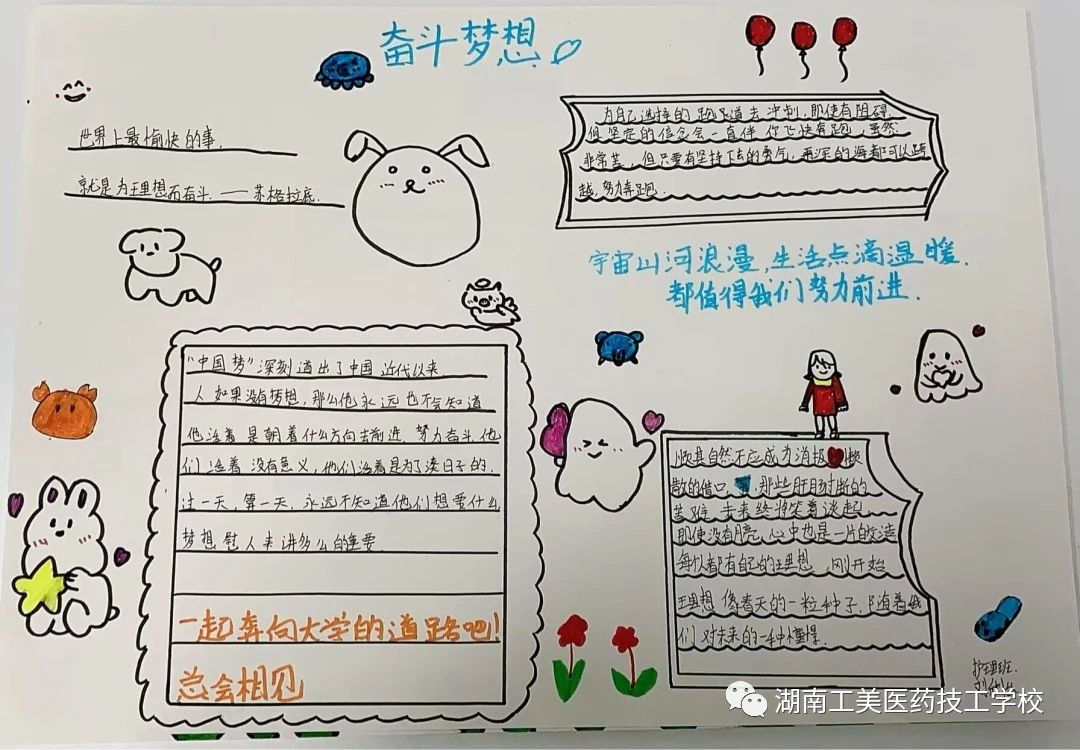 奋斗梦想
世界上最愉快的事,
就是为理想而奋斗. —— 苏格拉底.
为自己选择的跑道去冲刺,即使有阻碍
但坚定的信念会一直伴你飞快奔跑,虽然
非常苦,但只要有坚持下去的勇气,再深的海都可以跨
越,努力奔跑.
宇宙山河浪漫,生活点滴温暖.
都值得我们努力前进.
“中国梦”深刻道出了中国近代以来
人如果没有梦想,那么他永远也不会知道
他活着是朝着什么方向去前进 努力奋斗,他
们活着没有意义,他们活着是为了渡日子的.
过一天,算一天,永远不知道他们想要什么
梦想 对人来讲多么的重要.
一起奔向大学的道路吧!
总会相见
顺其自然不应成为消极
散的借口 那些肝肠寸断的
苦难 未来终将笑着谈起
即使没有月亮,心中也是一片的皎洁
每个人都有自己的理想 刚开始
理想像春天的一粒种子,随着我
们对未来的一种憧憬.
护理班.
湖南工美医药技工学校